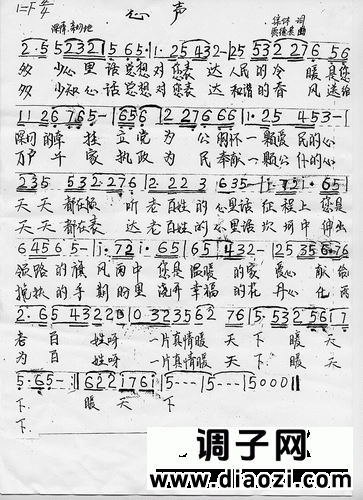 心声
1=F 4/4
深情、亲切地
集体 词
2·5 5 2 3 2 | 5 6 5· | 1· 2 5 4 3 2 - | 2 5 5 3 2 2 7 6 5 6
多少心里话想对您表达人民的冷暖是您
多少知心话想对您表达和谐的春风送给
1 1 2 6 7 6 5 - | 6 5 6 | 2 2 7 6 6 6 | 1· 2 4 5 3 -
深深的牵挂立党为公胸怀一颗爱民的心
万户千家执政为民奉献一颗公仆的心
2 3 5 5 3 2·2 7 6 | 2· 2 2 2 3 | 6 3 5 - | i· 7 2 i· 6 5
天天都在听老百姓的心里话征程上您是
天天都在表达老百姓的心里话坎坷中伸出
6 4 5 6 5 - | i· 7 2 i· 6 5 | 6 5 4 3 2 - | 2 5 3 5 6 7 6
领路的旗风雨中您是温暖的家爱心献给
搀扶的手
幸福的花丹心化为
2· 6 5 4 3 2 2 | 0 3 2 3 5 6 2 7 6 | 5· 5 3 2 5 6 1 7
老百姓呀一片真情暖天下暖天
为百姓呀一片真情暖天下暖天
5· 6 5 - :‖ 6 2 2 1 7 6 i | 5 - - - | 5 - - - | 5 0 0 0 ‖
下暖天下
下
调子网
www.diaozi.com